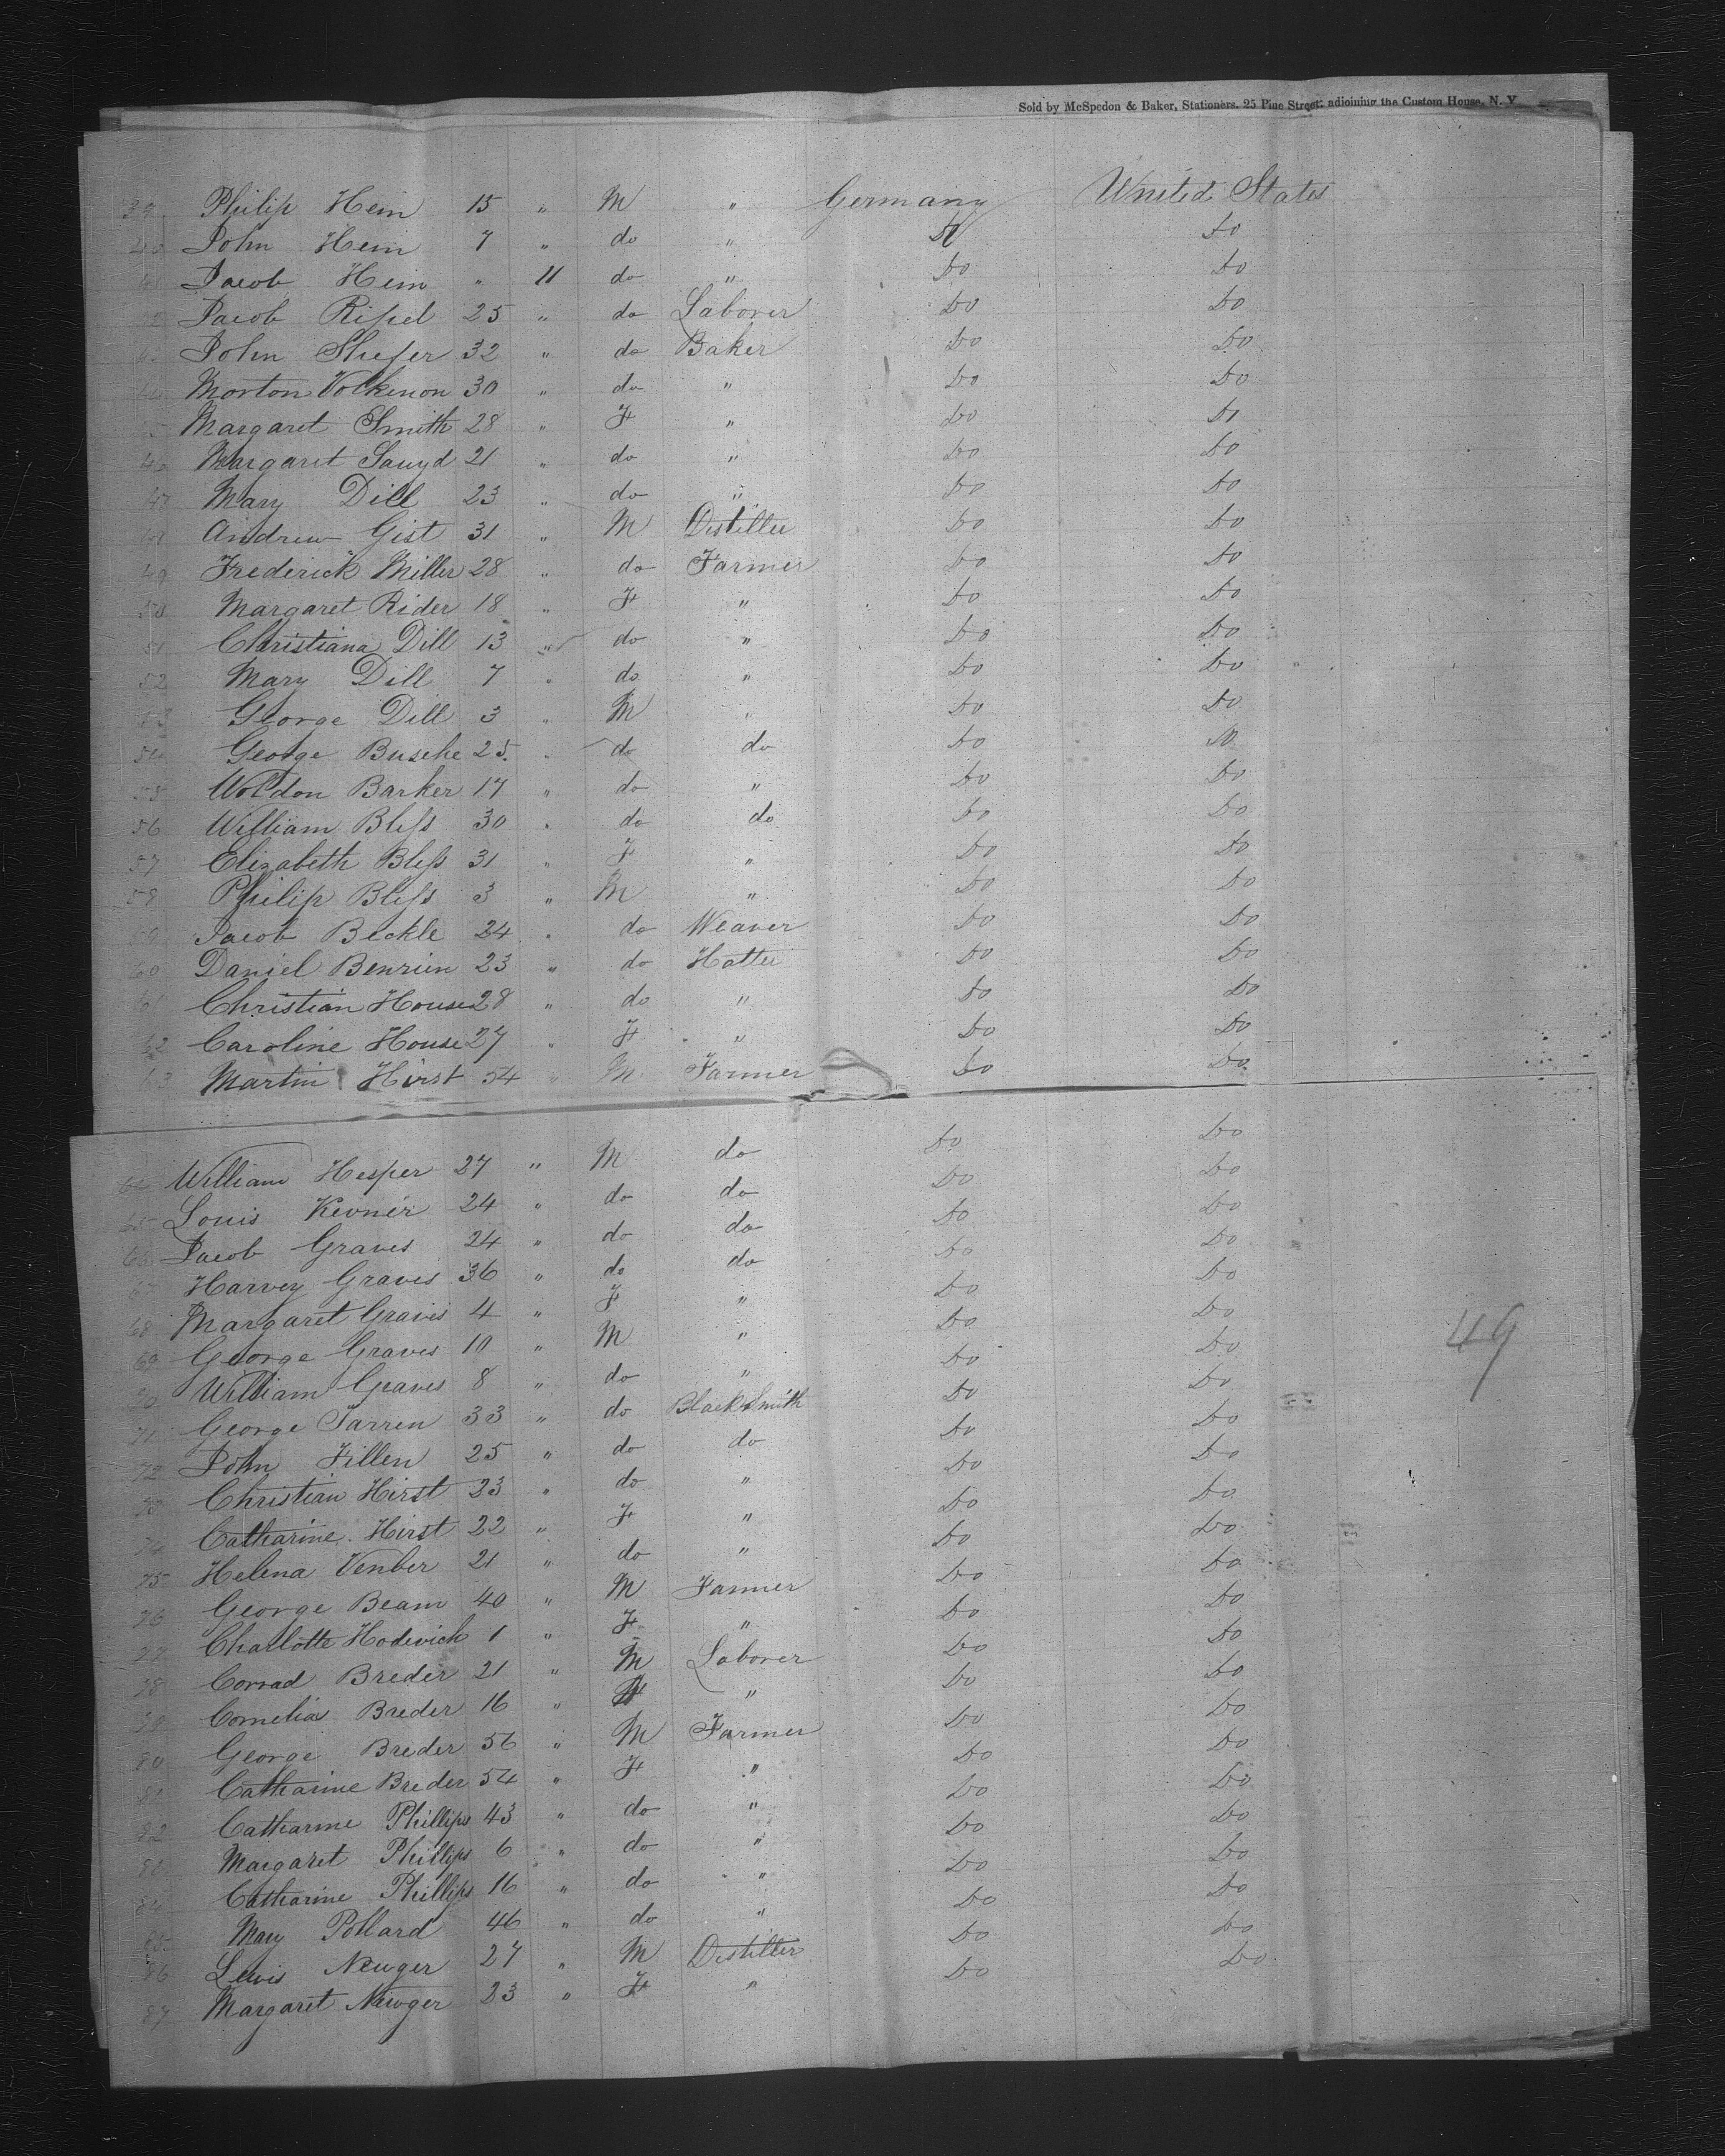 Sold by McSpedon & Baker, Stationers, 25 Pine Street, adjoining the Custom House, N. Y.
39 Philip Hein 15 " M " Germany United States
40 John Hein 7 " do " Do Do
Jacob Hein " 11 do " Do Do
Jacob Ripel 25 " do Laborer Do Do
John Shefer 32 " do Baker Do Do
Morton Volkenon 30 " do " Do Do
45 Margaret Smith 28 " F " Do Do
46 Margaret 21 " do " Do Do
47 Mary Dill 23 " do " Do Do
Andrew Gist 31 " M Distiller Do Do
49 Frederick Miller 28 " do Farmer Do Do
50 Margaret Rider 18 " F " Do Do
51 Christiana Dill 13 " do " Do Do
52 Mary Dill 7 " do " Do Do
53 George Dill 3 " M " Do Do
54 George Busche 25 " do do Do Do
55 Woldon Barker 17 " do " Do Do
56 William Bless 30 " do do Do Do
57 Elizabeth Bless 31 " F " Do Do
58 Philip Bless 3 " M " Do Do
59 Jacob Beckle 24 " do Weaver Do Do
60 Daniel Benrien 23 " do Hatter Do Do
61 Christian House 28 " do " Do Do
62 Caroline House 27 " F " Do Do
63 Martin Hirst 54 " M Farmer Do Do
64 William Hesper 27 " M do Do Do
65 Louis Kevner 24 " do do Do Do
66 Jacob Graves 24 " do do Do Do
67 Harvey Graves 36 " do do Do Do
68 Margaret Graves 4 " F " Do Do
69 George Graves 10 " M " Do Do
70 William Graves 8 " do " Do Do
71 George Tarren 33 " do BlackSmith Do Do
72 John Fillen 25 " do do Do Do
73 Christian Hirst 23 " do " Do Do
74 Catharine Hirst 22 " F " Do Do
75 Helena Venber 21 " do " Do Do
76 George Beam 40 " M Farmer Do Do
77 Charlotte Hodevich 1 " F " Do Do
78 Conrad Breder 21 " M Laborer Do Do
79 Cornelia Breder 16 " F " Do Do
80 George Breder 56 " M Farmer Do Do
81 Catharine Breder 54 " F " Do Do
82 Catharine Phillips 43 " do " Do Do
83 Margaret Phillips 6 " do " Do Do
84 Catharine Phillips 16 " do " Do Do
85 Mary Pollard 46 " do " Do Do
86 Lewis Newger 27 " M Distiller Do Do
87 Margaret Newger 23 " F " Do Do
49